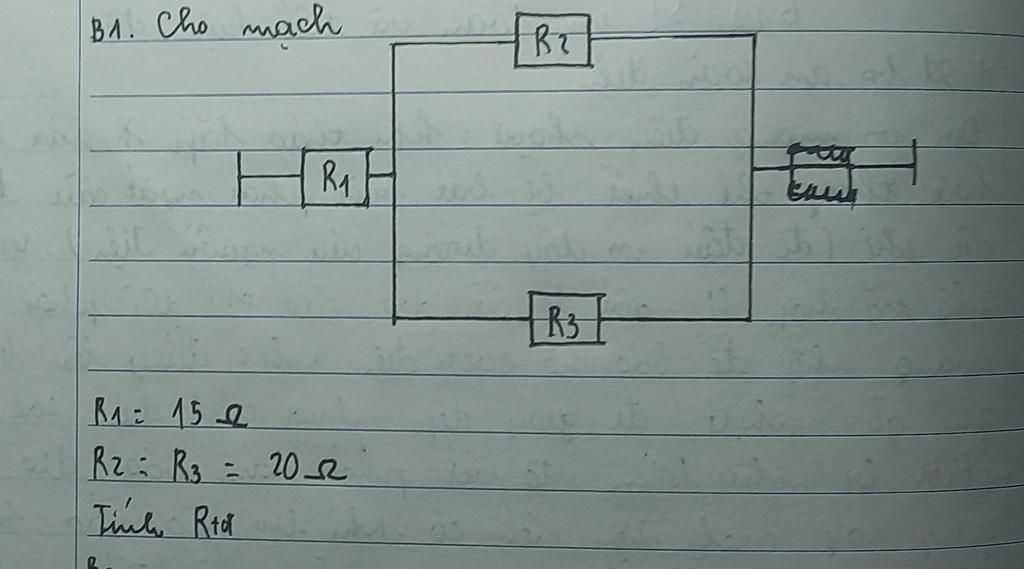 B1. Cho mạch
R2
R1
R3
R1 = 15 Ω
R2 = R3 = 20 Ω
Tính Rtđ